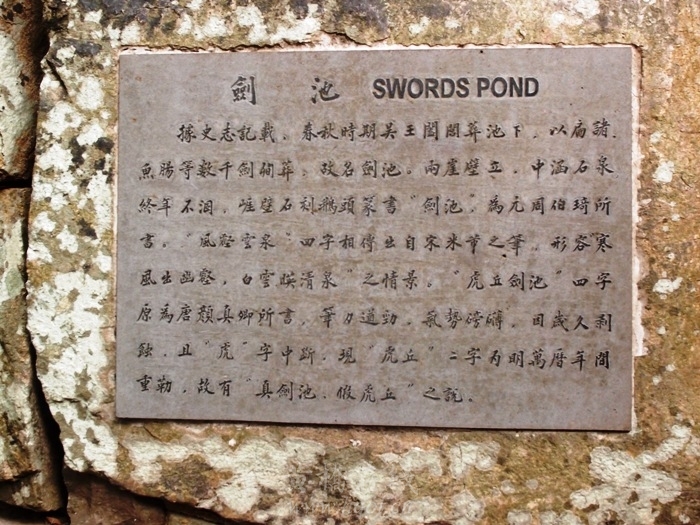 劍池 SWORDS POND
據史志記載、春秋時期吴王闔閭葬池下，以扁諸、
魚腸等數千劍殉葬，故名劍池。兩崖壁立，中涵石泉
終年不涸，崖壁石刻鵝頭篆書“劍池”，為元周伯琦所
書。“風壑雲泉”四字相傳出自宋米芾之筆，形容“寒
風出幽壑，白雲暎清泉”之情景。“虎丘劍池”四字
原為唐顏真卿所書，筆力遒勁，氣勢磅礴，因歲久剥
蝕，且“虎”字中斷，現“虎丘”二字为明萬曆年間
重勒，故有“真劍池、假虎丘”之説．